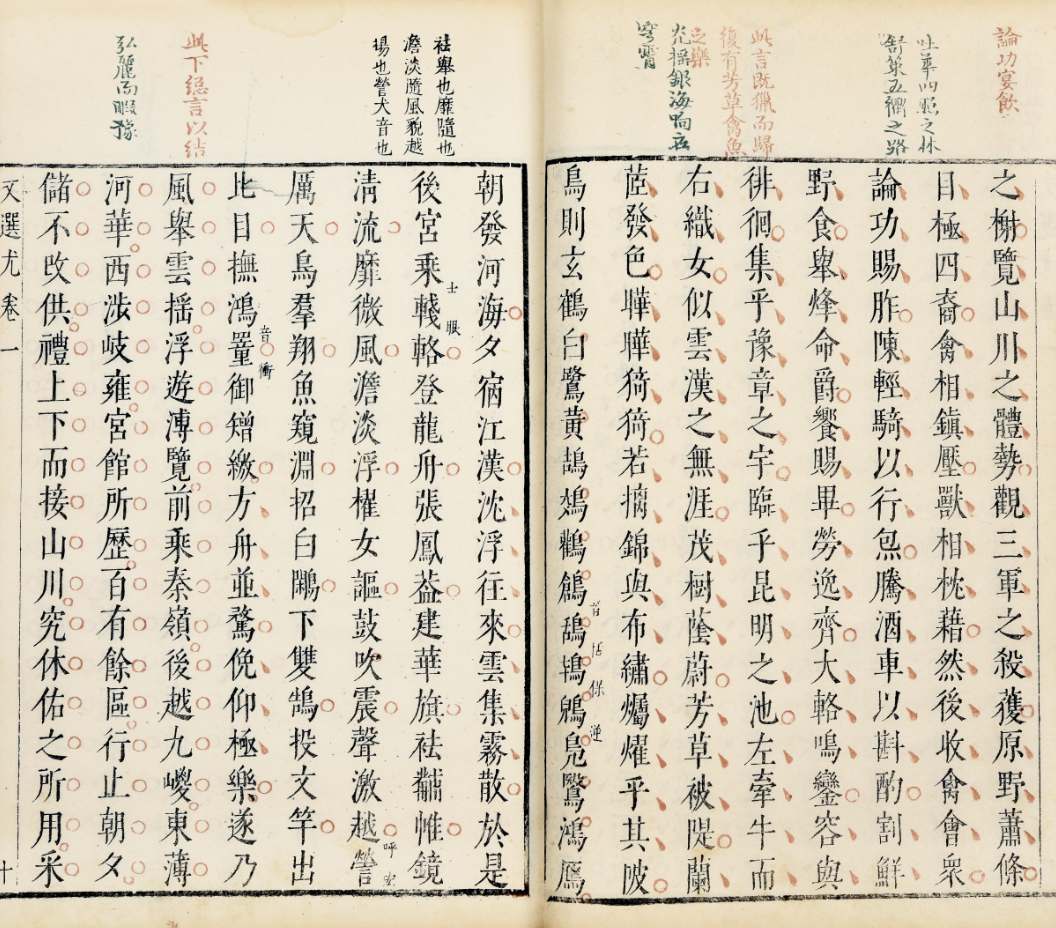 論功宴飲
吐華四照之林
舒策五衢之路
此言既獵而歸
復有芳草禽魚
之樂
光搖銀海响在
穹霄
之榭覽山川之體勢觀三軍之殺獲原野蕭條
目極四裔禽相鎮壓獸相枕藉然後收禽會衆
論功賜胙陳輕騎以行炰騰酒車以斟酌割鮮
野食舉烽命爵饗賜畢勞逸齊大輅鳴鑾容與
徘徊集乎豫章之宇臨乎昆明之池左牽牛而
右織女似雲漢之無涯茂樹蔭蔚芳草被隄蘭
茝發色曄曄猗猗若摛錦與布繡爥燿乎其陂
鳥則玄鶴白鷺黃鵠鵁鸛鶬鴰鴇鶂鳧鷖鴻鴈
音括保逆
袪舉也靡隨也
澹淡隨風貌越
揚也營大音也
此下總言以結
弘麗而暇豫
朝發河海夕宿江漢沈浮往來雲集霧散於是
後宮乘輚輅登龍舟張鳳葢建華旗袪黼帷鏡
士眼
清流靡微風澹淡浮櫂女謳鼓吹震聲激越謍
呼宏
厲天鳥羣翔魚窺淵招白鷴下雙鵠投文竿出
比目撫鴻罿御矰繳方舟並騖俛仰極樂遂乃
音衝
風舉雲搖浮遊溥覽前乘秦嶺後越九嵕東薄
河華西涉岐雍宮館所歷百有餘區行止朝夕
儲不改供禮上下而接山川究休佑之所用采
文選尤 卷一
十